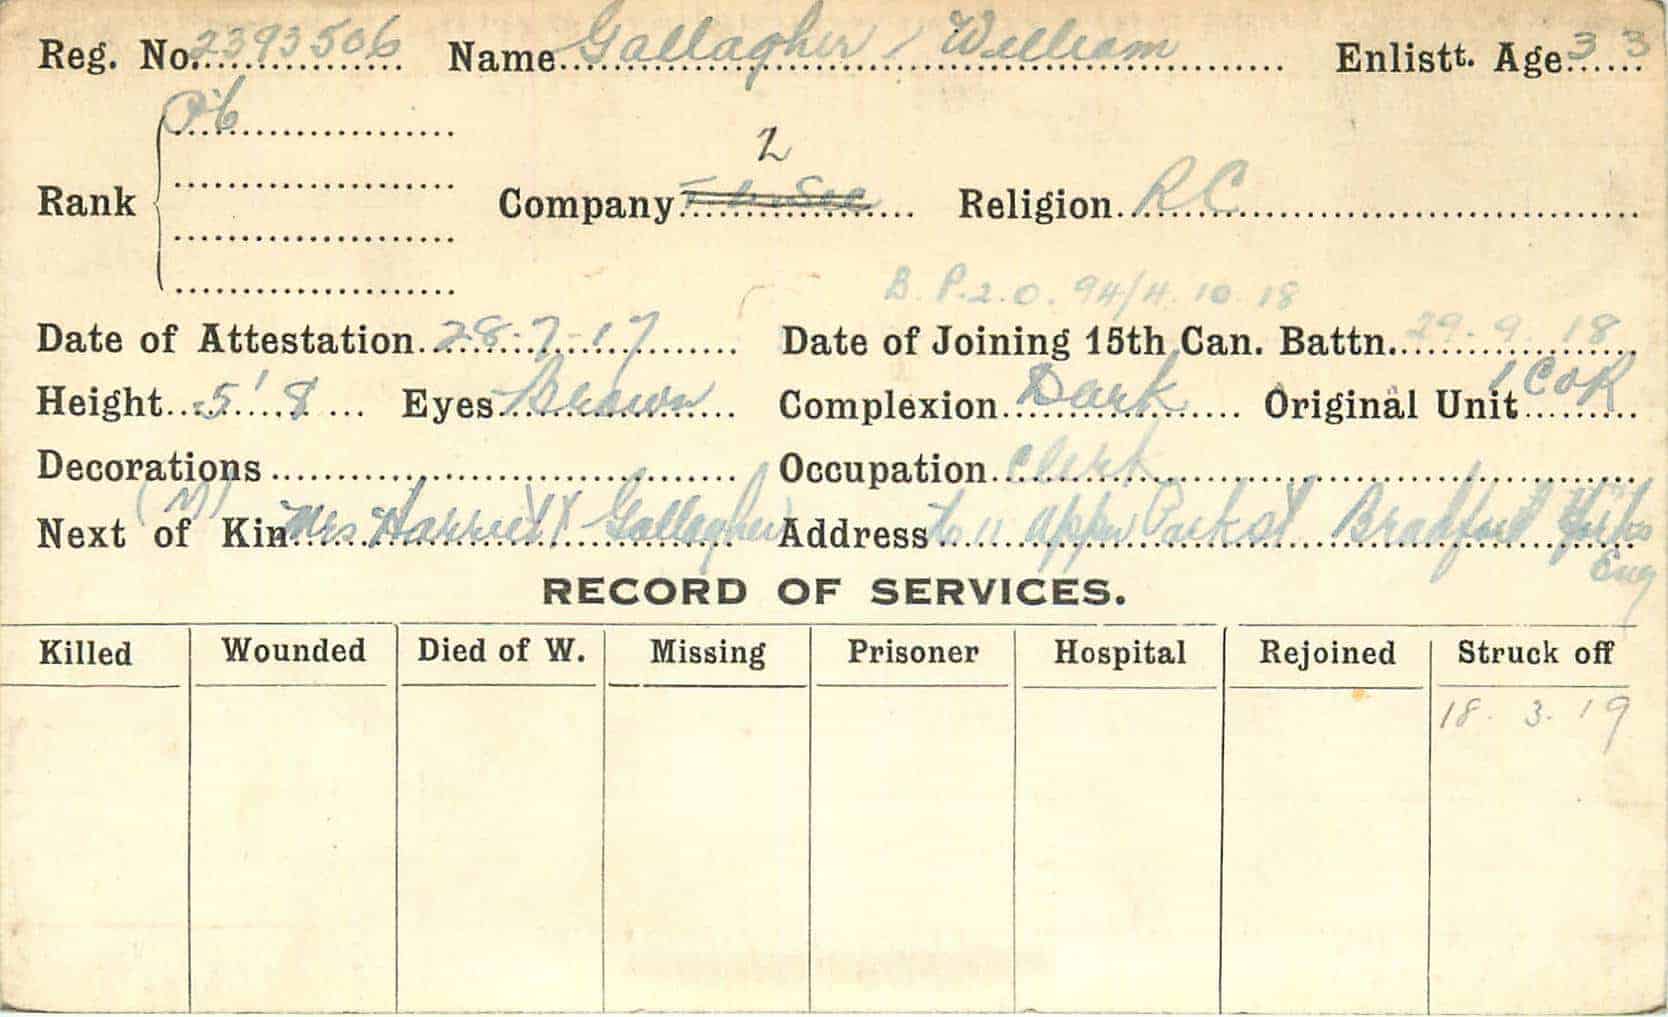 Reg. No. 2393506 Name Gallagher, William Enlistt. Age 33
Pte
2
Rank Company Religion RC
B. P.2.0. 94/4.10.18
Date of Attestation 28-7-17 Date of Joining 15th Can. Battn. 29.9.18
Height 5' 8 Eyes Brown Complexion Dark Original Unit 1 COR
Decorations Occupation Clerk
(M)
Next of Kin Mrs Harriett Gallagher Address 11 Upper Park St Bradford Yorks
Eng
RECORD OF SERVICES.
Killed Wounded Died of W. Missing Prisoner Hospital Rejoined Struck off
18. 3. 19